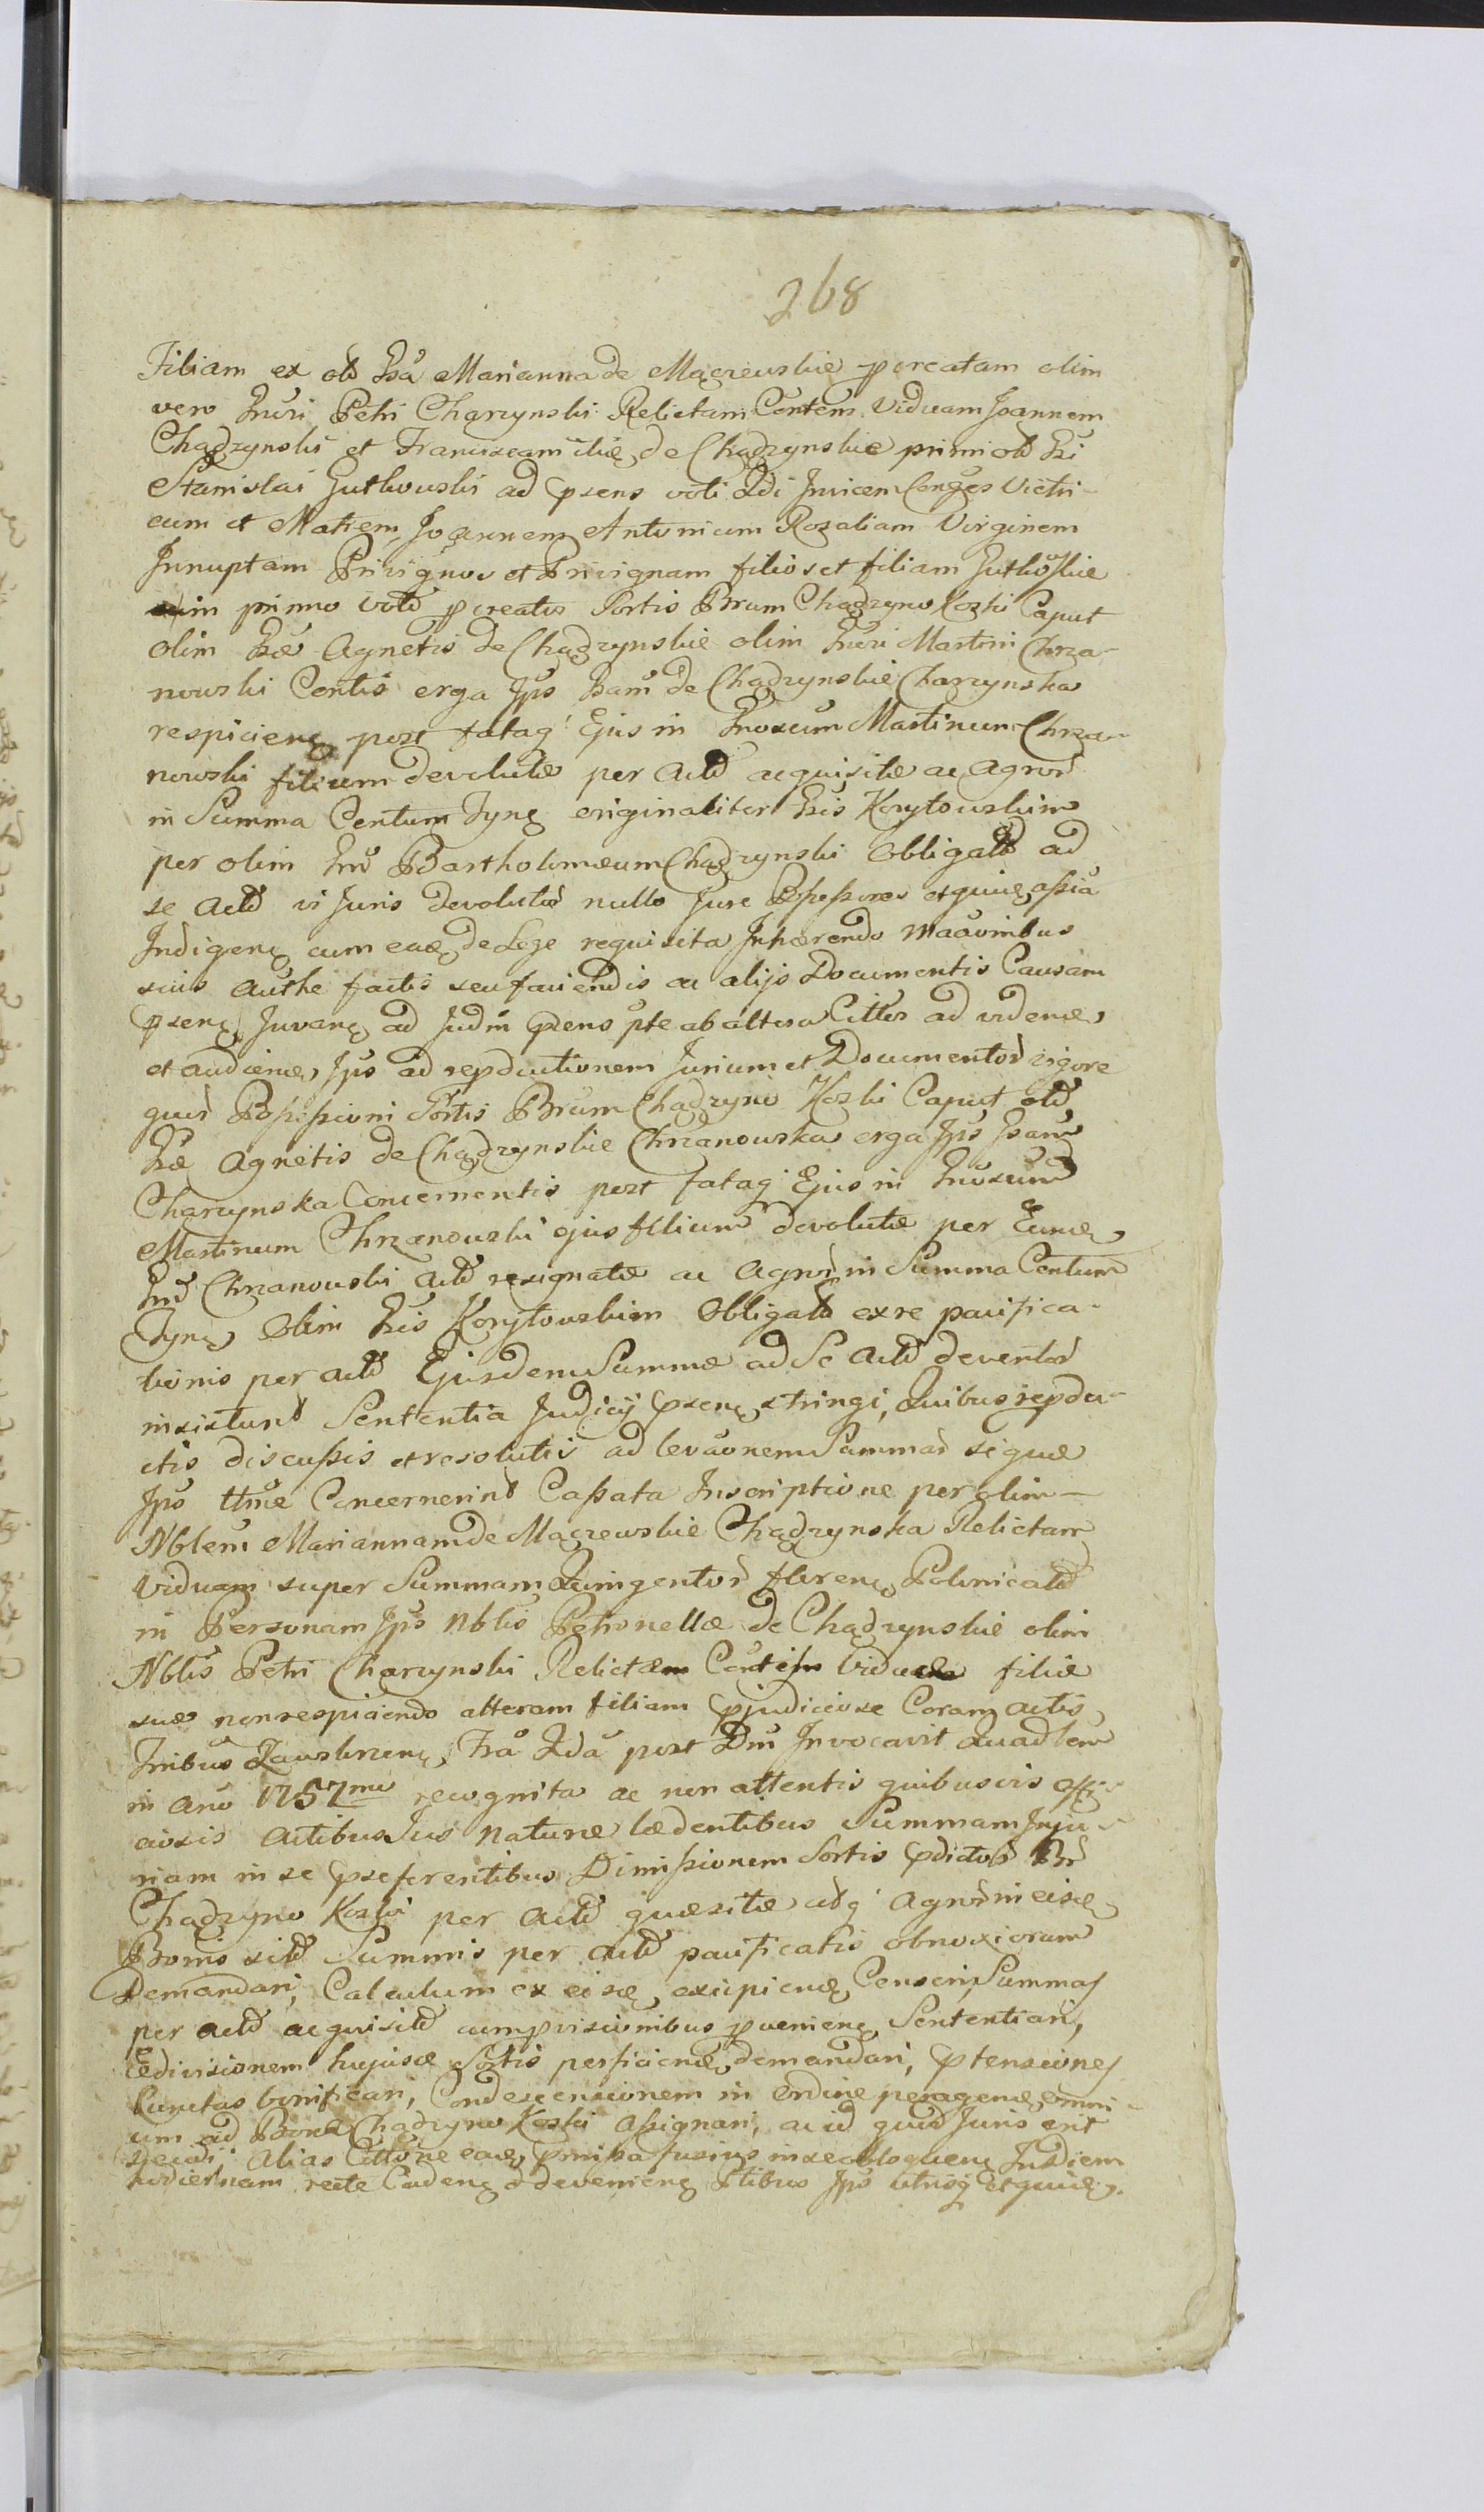 268
Filiam ex olŏ Gsă Marianna de Mączewskie pcreatam olim
vero Gnŭsi Petri Charzynski Relictam Contem̆ Viduam Joannem
Chądzynski et Franciscam de Chądzynskie primi olŏ
Stanislai Gutkowski ad psens voti 2di Invicem Conges Vitri-
cum et Matrem, Joannem Antonium Rozaliam Virginem
Innuptam Privignos et Privignam filios et filiam Gutkowskie
in primo voto pcreatos Sortis Brum Chądzyno Kozki Caput
olim Agnetis de Chądzynskie olim Martini Chrza-
nowski Contis erga Jps de Chądzynskie Charzynska
respicieng post fatag Ejus in Martinum Chrza-
nowski filium devolutæ per Actŏ acquisitæ ac agrorŏ
in Summa Centum Tyng originaliter Korytowskim
per olim Bartholomæum Chądzynski Obligatŏ ad
se Actŏ vi Juris devolutor nullo Jure Possessores
Indigeng cum de Lege requisita Inhærendo
suis Authe factis seu faciendis ac alijs Documentis Causam
pseng Juvang ad Judm̆ pdens pte ab altera Cittos ad videnæ
et audienæ, Jps ad repductionem Jurium et Documentor vigore
quor Possessioni Sortis Brum Chądzyno Kozki Caput olŏ
Agnetis de Chądzynskie Chrzanowska erga Jps
Charzynska Concernentis post fatag Ejus in
Martinum Chrzanowski ejus filium devolutæ per
Chrzanowski Actŏ resignatæ ac Agror in Summa Centum
Tyng Olim Korytowskim Obligatŏ ex re pacifica-
tionis per Actŏ Ejusdem Summæ ad Se Actŏ deventor
insistunt Sententia Judicij pseng stringi, Quibus repdu-
ctis discussis et resolutis ad levăonem Summar siquæ
Jps Concernerint Cassata Inscriptione per olim
Nblem̆ Mariannam de Mączewskie Chądzynska Relictam
Viduam super Summam Quingentor floreng Polonicaliŏ
in Personam Jps Nblis Petronellæ de Chądzynskie olim
Nblis Petri Charzynski Relictæ Viduæ filiæ
suæ non respiciendo alteram filiam pjudiciose Coram actis
Zausknzeng, Fră 2dă post Dm̆ Invocavit
in Anŏ 1757mo recognita ac non attentis quibusvis
actibus Jus naturæ lædentibus Summam Inju-
riam in se pseferentibus Dimissionem Sortis pdictor Br
Chądzyno Kozki per Actŏ quæsitæ adq Agror in eisæ
Bonis sitŏ Summis per Actŏ pacificatis obnoxiorum
Demandari, Calculum ex eisæ excipienæ Censeri, Summas
per Actŏ acquisitŏ cum pvisionibus pvenieng Sententiari,
divisionem hujusæ Sortis perficienæ demandari, ptensiones
Cunctas bonificari, Condescensionem in Ordine peragenæ omni-
um ad Bona Chądzyno Kozki Assignari, ac id quid Juris erit
Alias Cittŏne pmissa fusius in se obloqueng In Diem
hodiernam recte Cadeng & devenieng Ptibus Jps utrisq